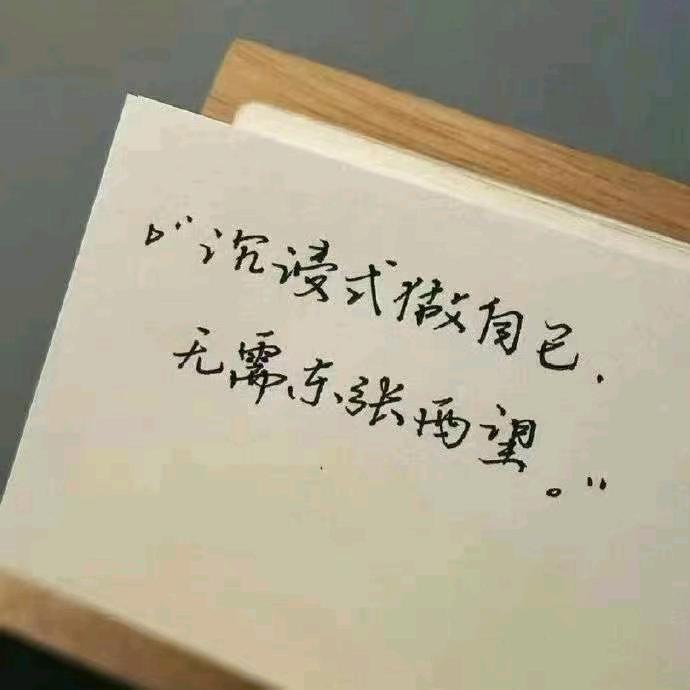 “沉浸式做自己，
无需东张西望。”